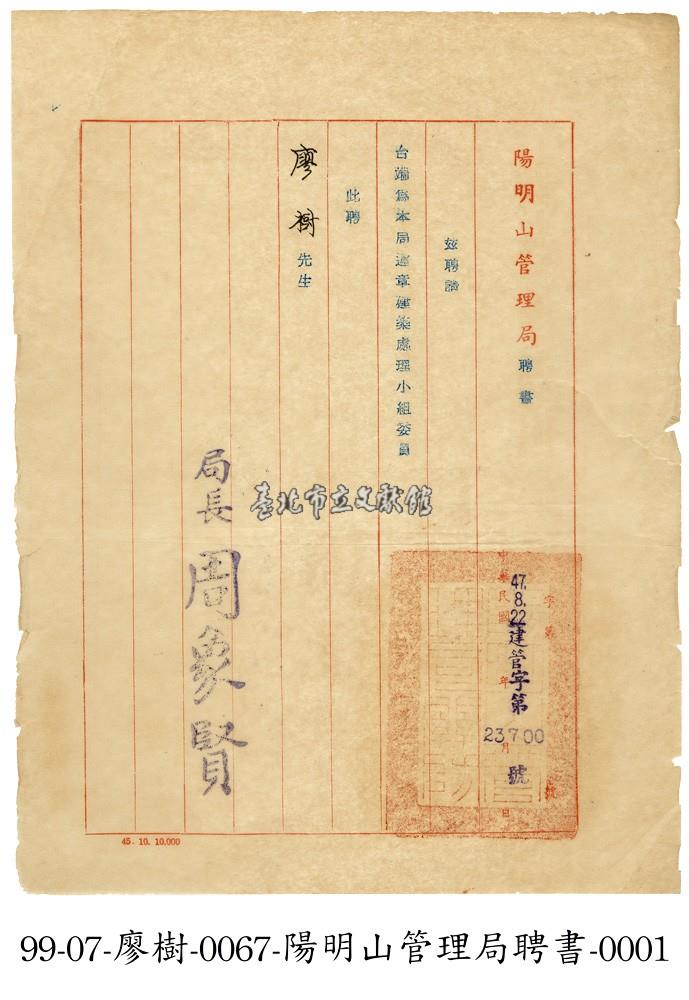 陽明山管理局聘書
字第 號
中華民國 年 月 日
47.8.22建管字第
23700
號
玆聘請
台端為本局違章建築處理小組委員
此聘
廖樹先生
局長周象賢
臺北市立文獻館
45. 10. 10,000
99-07-廖樹-0067-陽明山管理局聘書-0001